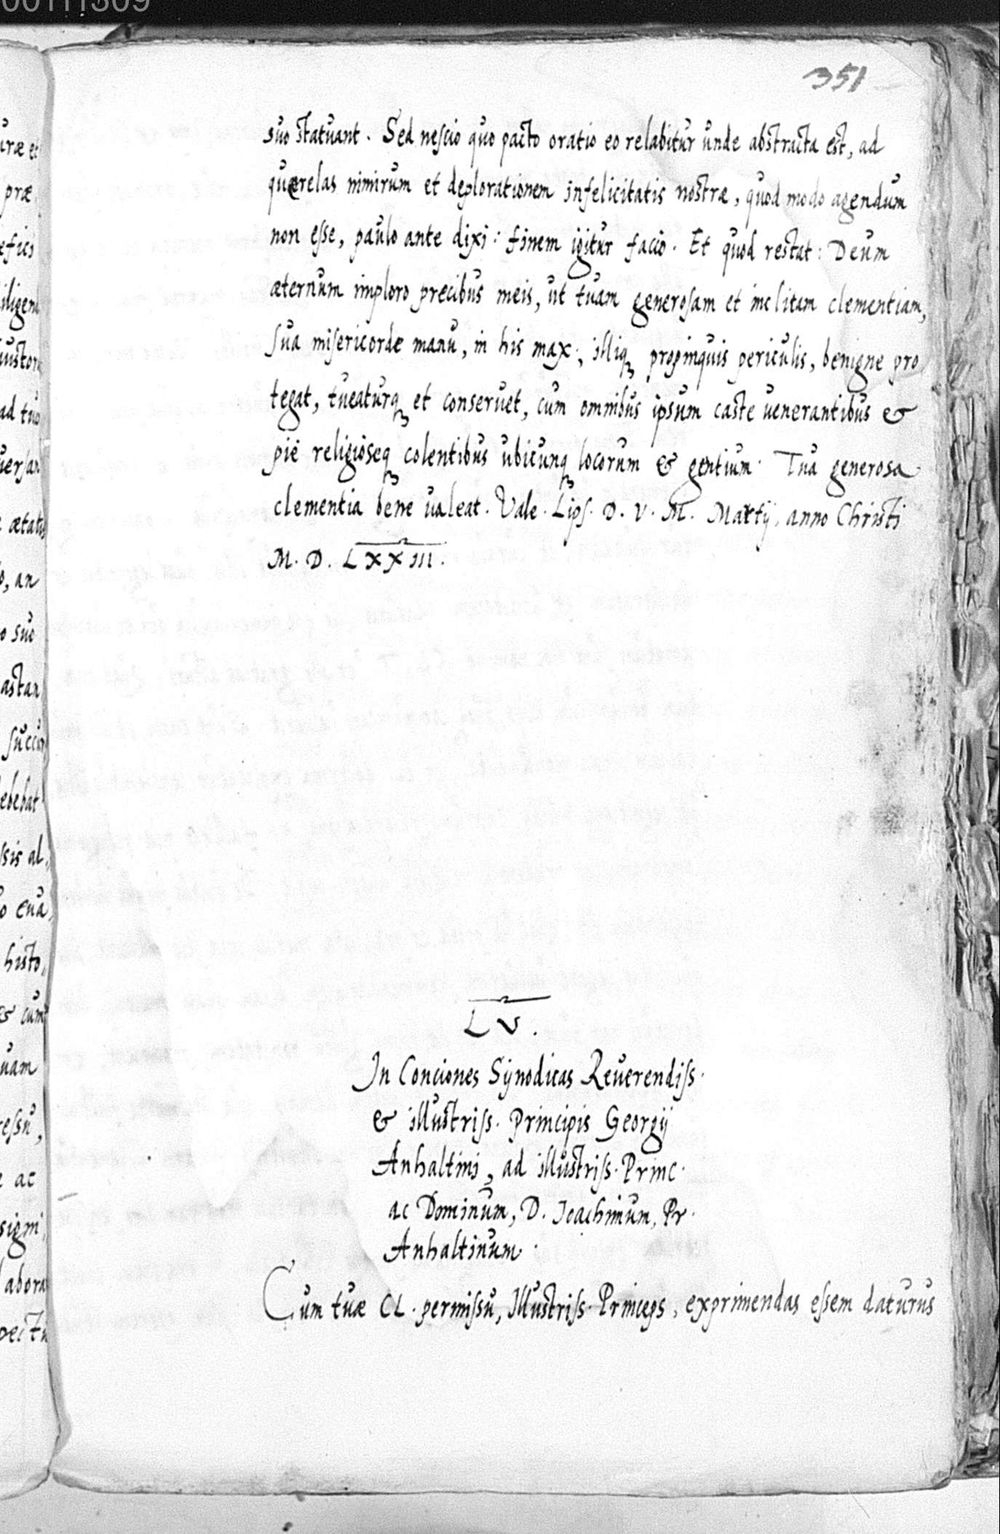 351
suo statuant. Sed nescio quo pacto oratio eo relabitur unde abstracta est, ad
quærelas nimirum et deplorationem infelicitatis nostræ, quod modo agendum
non esse, paulo ante dixi: finem igitur facio. Et quod restat: Deum
æternum imploro precibus meis, ut tuam generosam et inclitam clementiam,
sua misericorde manu, in his max:, illiq propinquis periculis, benigne pro
tegat, tueaturq et conseruet, cum omnibus ipsum caste uenerantibus &
pie religioseq colentibus ubicunq locorum & gentium. Tua generosa
clementia bene ualeat. Vale. Lips. D. V. M. Martij, anno Christi
M. D. LXXIII.
LV.
In Conciones Synodicas Reuerendiss.
& illustriss. Principis Georgij
Anhaltini, ad illustriss. Princ.
ac Dominum, D. Ioachimum, Pr.
Anhaltinum.
Cum tuæ CL. permissu, Illustriss. Princeps, exprimendas essem daturus